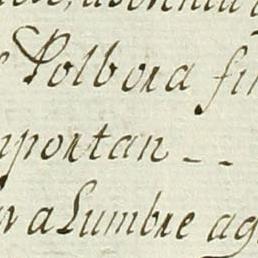 Polbora fi
mportan --
a Lumbre ag